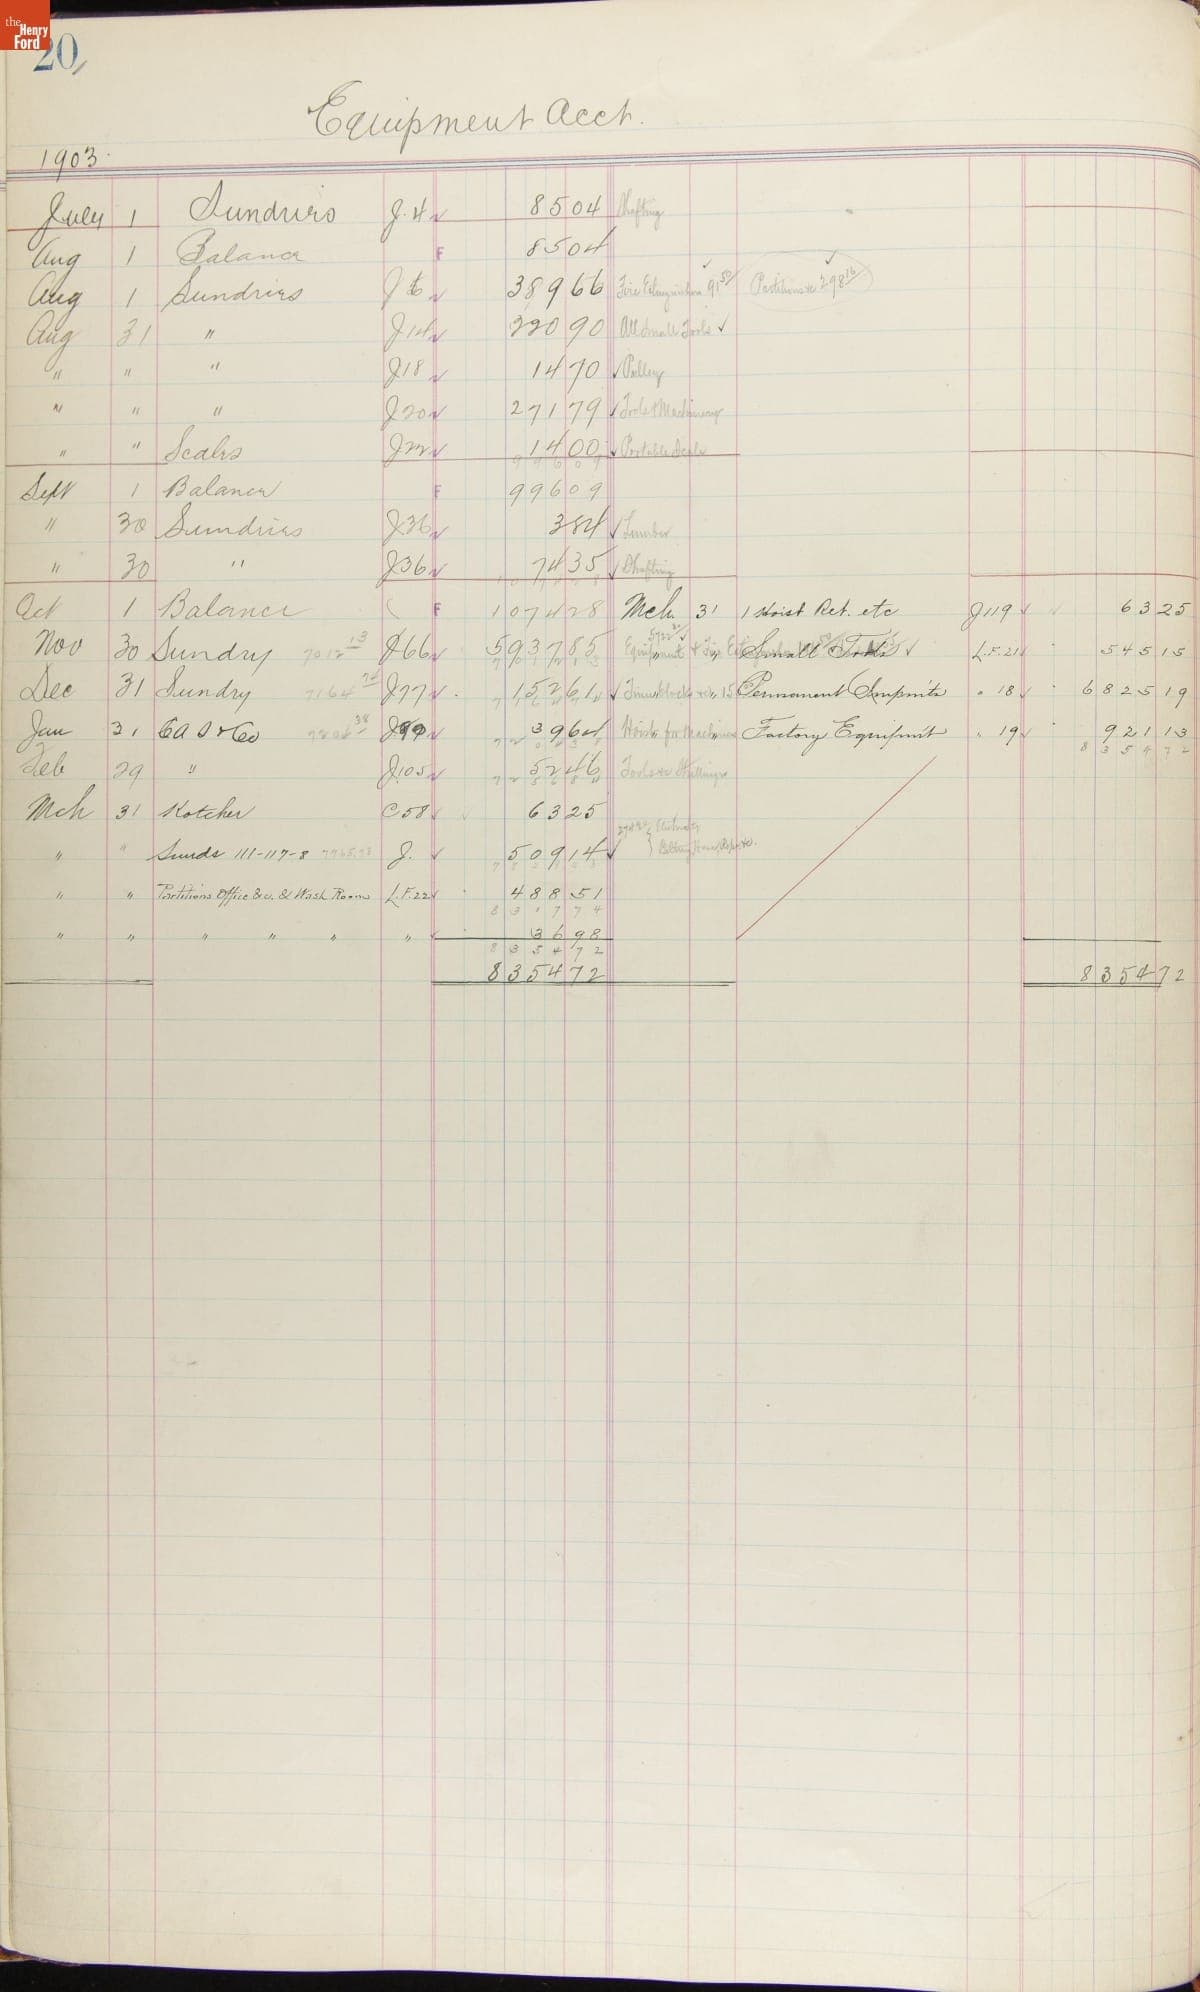 the Henry Ford
20
Equipment Acct.
1903
July 1 Sundries J.4 85 04 Shafting
Aug 1 Balance F 85 04
Aug 1 Sundries J6 389 66 Fire Extinguishers 91 50 Partitions &c 298 16
Aug 31 " J14 220 90 All Small Tools
" " " J18 14 70 Pulley
" " " J20 271 79 Tools & Machinery
" " Scales J22 14 00 Portable Scale
996 09
Sept 1 Balance F 996 09
" 30 Sundries J36 3 84 Lumber
" 30 " J36 74 35 Shafting
Oct 1 Balance F 1074 28 Mch 31 1 Hoist Ret. etc J119 63 25
Nov 30 Sundry 7012 13 J66 5937 85 Equipment & Fire " " Small Tools L.F.21 545 15
Dec 31 Sundry 7164 74 J77 152 61 " " Permanent Impmts " 18 6825 19
Jan 31 C A S & Co J99 39 64 Hoist for Machines " Factory Equipmt " 19 921 13
8354 72
Feb 29 " J105 52 46 Tools &
Mch 31 Kotcher C58 63 25
" " Sunds 111-117-8 J. 509 14
" " Partitions Office &c. & Wash Room L.F.22 488 51
8317 74
" " " " " " 36 98
8354 72
8354 72 8354 72